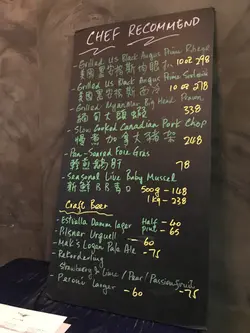 CHEF RECOMMEND
- Grilled US Black Angus Prime Ribeye
美國 10oz 298
- Grilled US Black Angus Prime Sirloin
美國 10oz 258
- Grilled Myanmar Big Head Prawn
緬甸大頭蝦 338
- Slow Cooked Canadian Pork Chop
慢煮加拿大豬 268
- Pan-Seared Foie Gras
鵝肝 78
- Seasonal Live Baby Mussel
新鮮BB青口 500g - 148
1kg - 238
Craft Beer
- Estrella Damm Lager Half - 60
pint - 65
- Pilsner Urquell - 60
- Mak's Logan Pale Ale - 75
- Rekorderlig
Strawberry & Lime / Pear / Passionfruit - 75
- Peroni Lager - 60